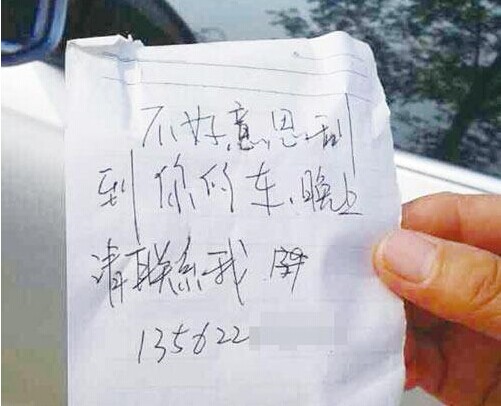 不好意思刮
到你的车、晚上
请联系我
135622